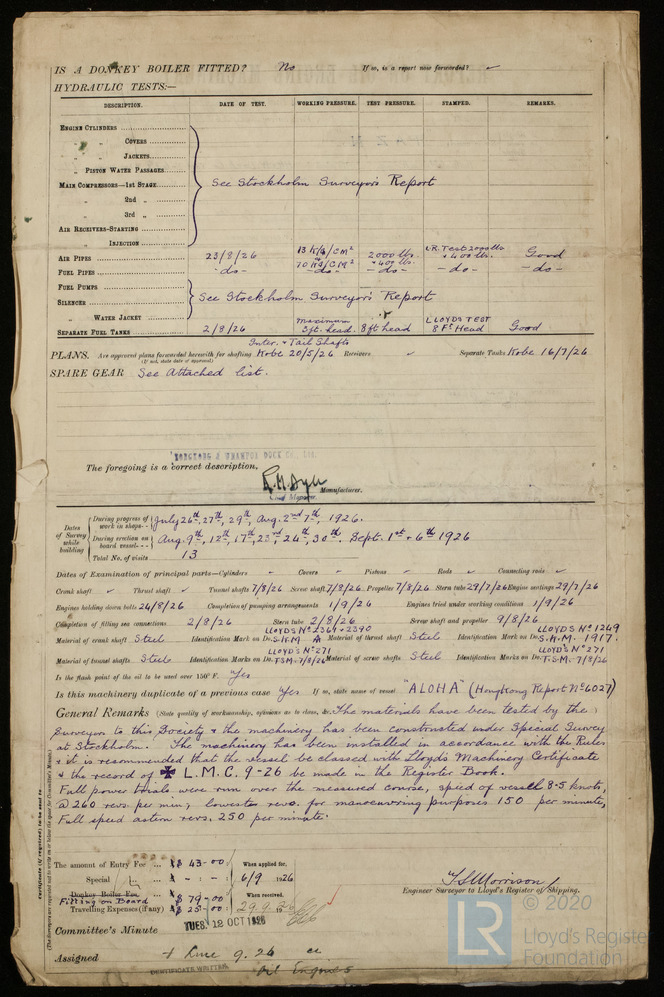 IS A DONKEY BOILER FITTED? No If so, is a report now forwarded? ✓
HYDRAULIC TESTS:—
DESCRIPTION. DATE OF TEST. WORKING PRESSURE. TEST PRESSURE. STAMPED. REMARKS.
ENGINE CYLINDERS
„ „ COVERS
„ „ JACKETS
„ „ PISTON WATER PASSAGES
MAIN COMPRESSORS—1ST STAGE See Stockholm Surveyor's Report
„ 2nd „
„ 3rd „
AIR RECEIVERS—STARTING
„ INJECTION
AIR PIPES 23/8/26 13 K/g/CM² 70 Kg/CM² 2000 lbs. + 400 lbs. L.R. Test 2000 lbs + 400 lbs. Good
FUEL PIPES -do- -do- -do- -do- -do-
FUEL PUMPS
SILENCER See Stockholm Surveyor's Report
„ WATER JACKET
SEPARATE FUEL TANKS 2/8/26 Maximum 3ft. head. 8ft head LLOYD'S TEST 8 Ft Head Good
Inter. & Tail Shafts
PLANS. Are approved plans forwarded herewith for shafting Kobe 20/5/26 Receivers ✓ Separate Tanks Kobe 16/7/26
(If not, state date of approval)
SPARE GEAR See Attached list.
HONGKONG & WHAMPOA DOCK CO., LTD.
The foregoing is a correct description,
Chief Manager. Manufacturer.
Dates of Survey while building
During progress of work in shops - - July 26th. 27th, 29th, Aug. 2nd 7th, 1926.
During erection on board vessel - - - Aug. 9th, 12th, 17th, 23rd, 24th, 30th. Sept. 1st + 6th 1926
Total No. of visits 13
Dates of Examination of principal parts—Cylinders ✓ Covers ✓ Pistons ✓ Rods ✓ Connecting rods ✓
Crank shaft ✓ Thrust shaft ✓ Tunnel shafts 7/8/26 Screw shaft 7/8/26 Propeller 7/8/26 Stern tube 29/7/26 Engine seatings 29/7/26
Engines holding down bolts 24/8/26 Completion of pumping arrangements 1/9/26 Engines tried under working conditions 1/9/26
Completion of fitting sea connections 2/8/26 Stern tube 2/8/26 Screw shaft and propeller 9/8/26
LLOYD'S No 2369 + 2390 LLOYD'S No 1249
Material of crank shaft Steel Identification Mark on Do. S.K.M. Material of thrust shaft Steel Identification Mark on Do. S.K.M. 1917.
LLOYD'S No 271 LLOYD'S No 271
Material of tunnel shafts Steel Identification Marks on Do. T.S.M. 7/8/26 Material of screw shafts Steel Identification Marks on Do. T.S.M. 7/8/26
Is the flash point of the oil to be used over 150° F. Yes
Is this machinery duplicate of a previous case Yes If so, state name of vessel "ALOHA" (Hongkong Report No 6027)
General Remarks (State quality of workmanship, opinions as to class, &c. The materials have been tested by the
Surveyor to this Society & the machinery has been constructed under Special Survey
at Stockholm. The machinery has been installed in accordance with the Rules
& it is recommended that the vessel be classed with Lloyds Machinery Certificate
& the record of ✠ L.M.C. 9-26 be made in the Register Book.
Full power trials were run over the measured course, speed of vessel 8.5 knots,
@ 260 revs per min; lowest revs. for manoeuvring purposes 150 per minute,
Full speed astern revs. 250 per minute.
Certificate (if required) to be sent to
(The Surveyors are requested not to write on or below the space for Committee's Minute.)
The amount of Entry Fee ... $ 43-00 When applied for,
Special ... $ - : - : 6/9 1926
Donkey Boiler Fee ...
Fitting on Board $ 79-00 When received,
Travelling Expenses (if any) $ 25-00 29.9.26
Engineer Surveyor to Lloyd's Register of Shipping.
Committee's Minute TUES. 12 OCT 1926
Assigned + Lmc 9.26
CERTIFICATE WRITTEN Oil Engines
© 2020
LR
Lloyd's Register
Foundation